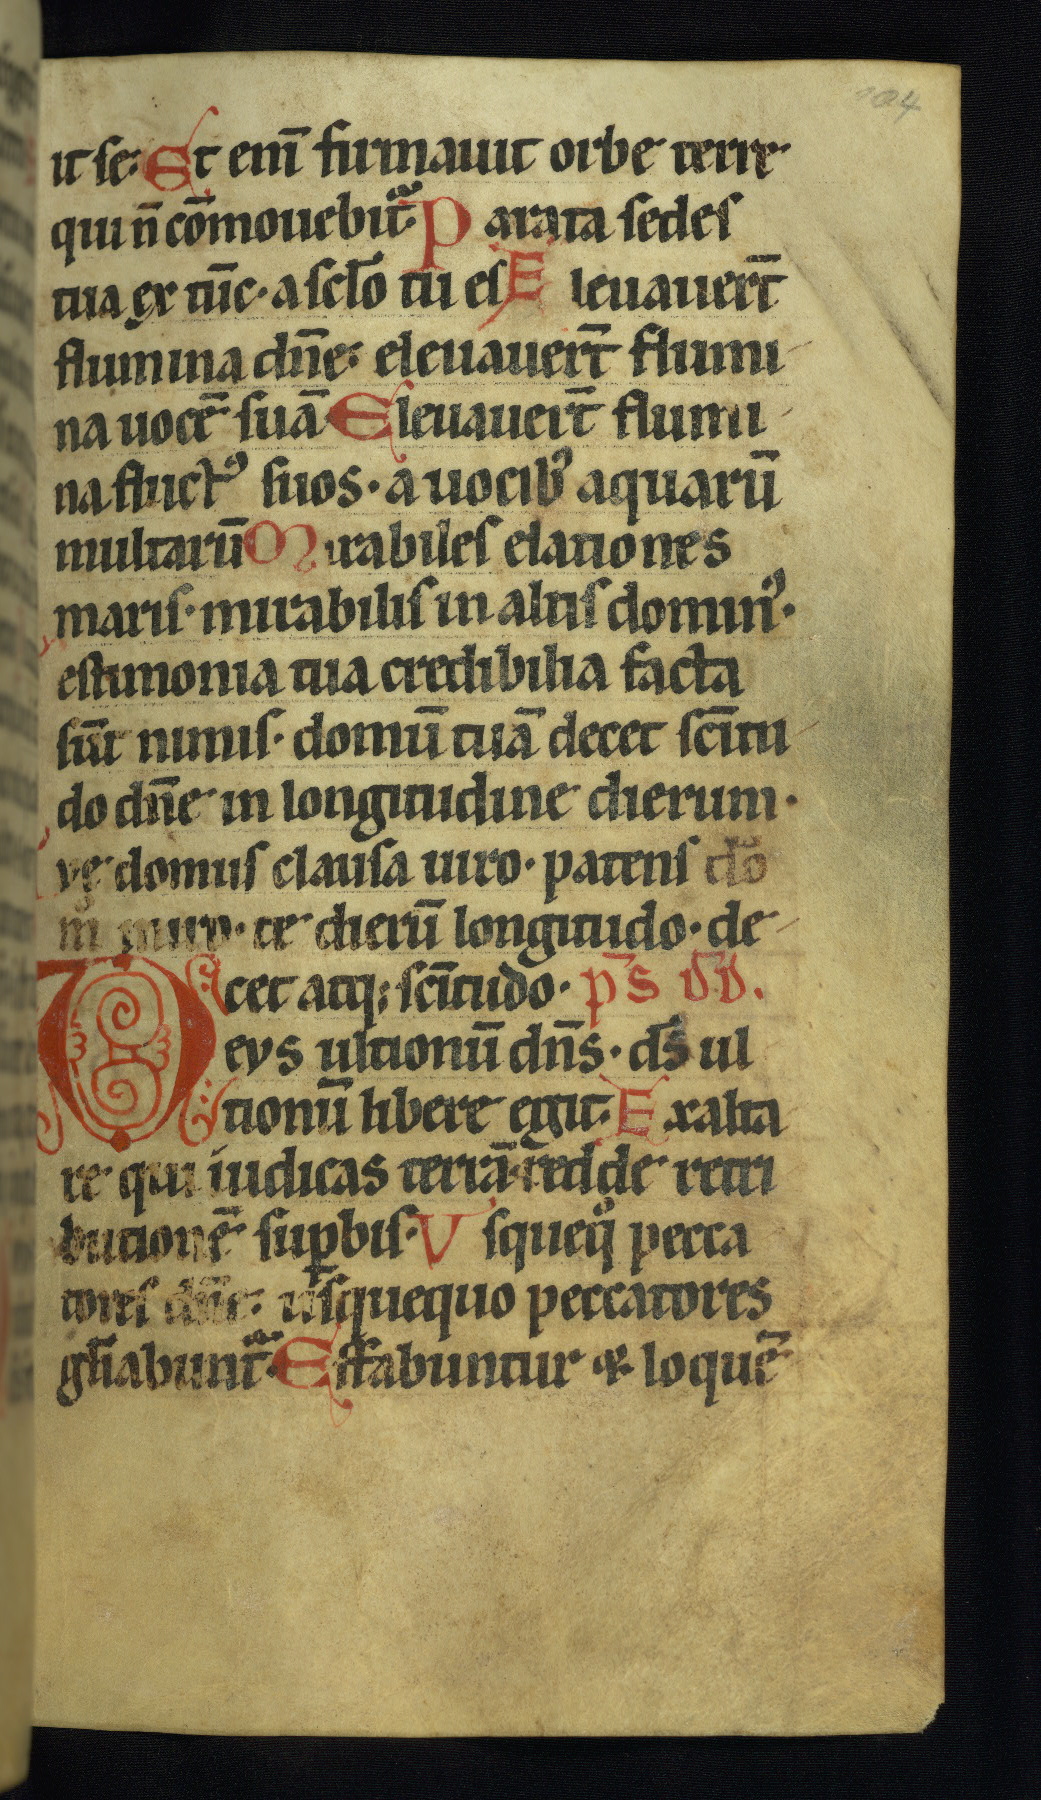 104
it se. Et eni̅ firmauit orbe terre
qui n̅ co̅mouebit᷑. Parata sedes
tua ex tu̅c. a sc̅lo tu es Eleuauer̅t
flumina dn̅e. eleuauer̅t flumi
na uoce̅ sua̅ Eleuauer̅t flumi
na fluctꝰ suos. a uocibꝰ aquaru̅
multaru̅ Mirabiles elationes
maris. mirabilis in altis dominꝰ.
estimonia tua credibilia facta
su̅t nimis. domu̅ tua̅ decet sc̅itu
do dn̅e in longitudine dierum.
ve domus clausa uiro. patens do̅
muro. te dieru̅ longitudo. de
cet atq; sc̅itudo. ps̅ dd̅.
Devs ultionu̅ dn̅s. ds̅ ul
tionu̅ libere egit. Exalta
re qui iudicas terra̅. redde retri
butione̅ suꝑbis. Vsqueqͦ pecca
tores dn̅e. usquequo peccatores
gl̅iabunt᷑. Effabuntur & loque̅